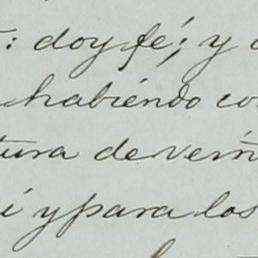 : doy fé; y
habiéndo co
tura de verm
i y para los